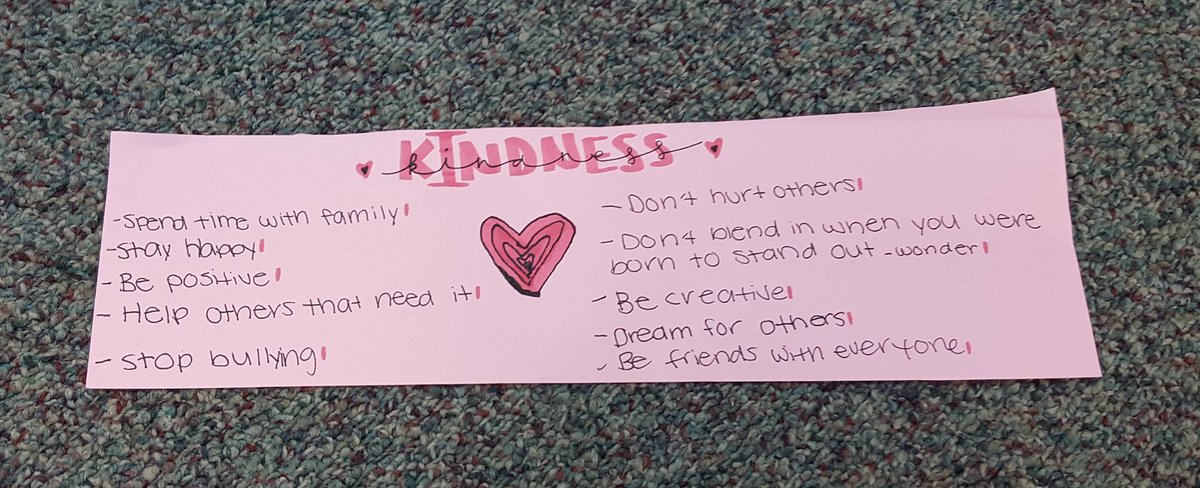 KINDNESS
kindness
-Spend time with family
-Stay happy
- Be positive
- Help others that need it
- Stop bullying
- Don't hurt others
- Don't blend in when you were
born to stand out -wonder
- Be creative
- Dream for others
- Be friends with everyone